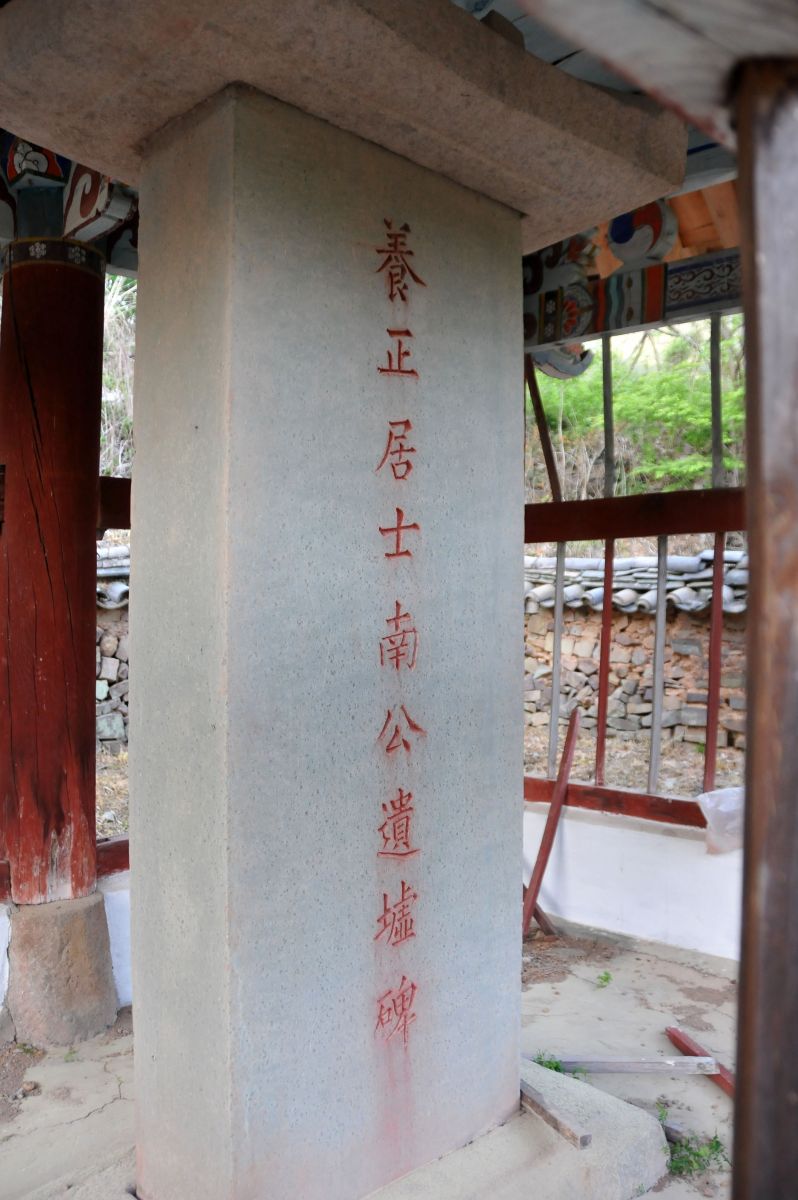 養正居士南公遺墟碑